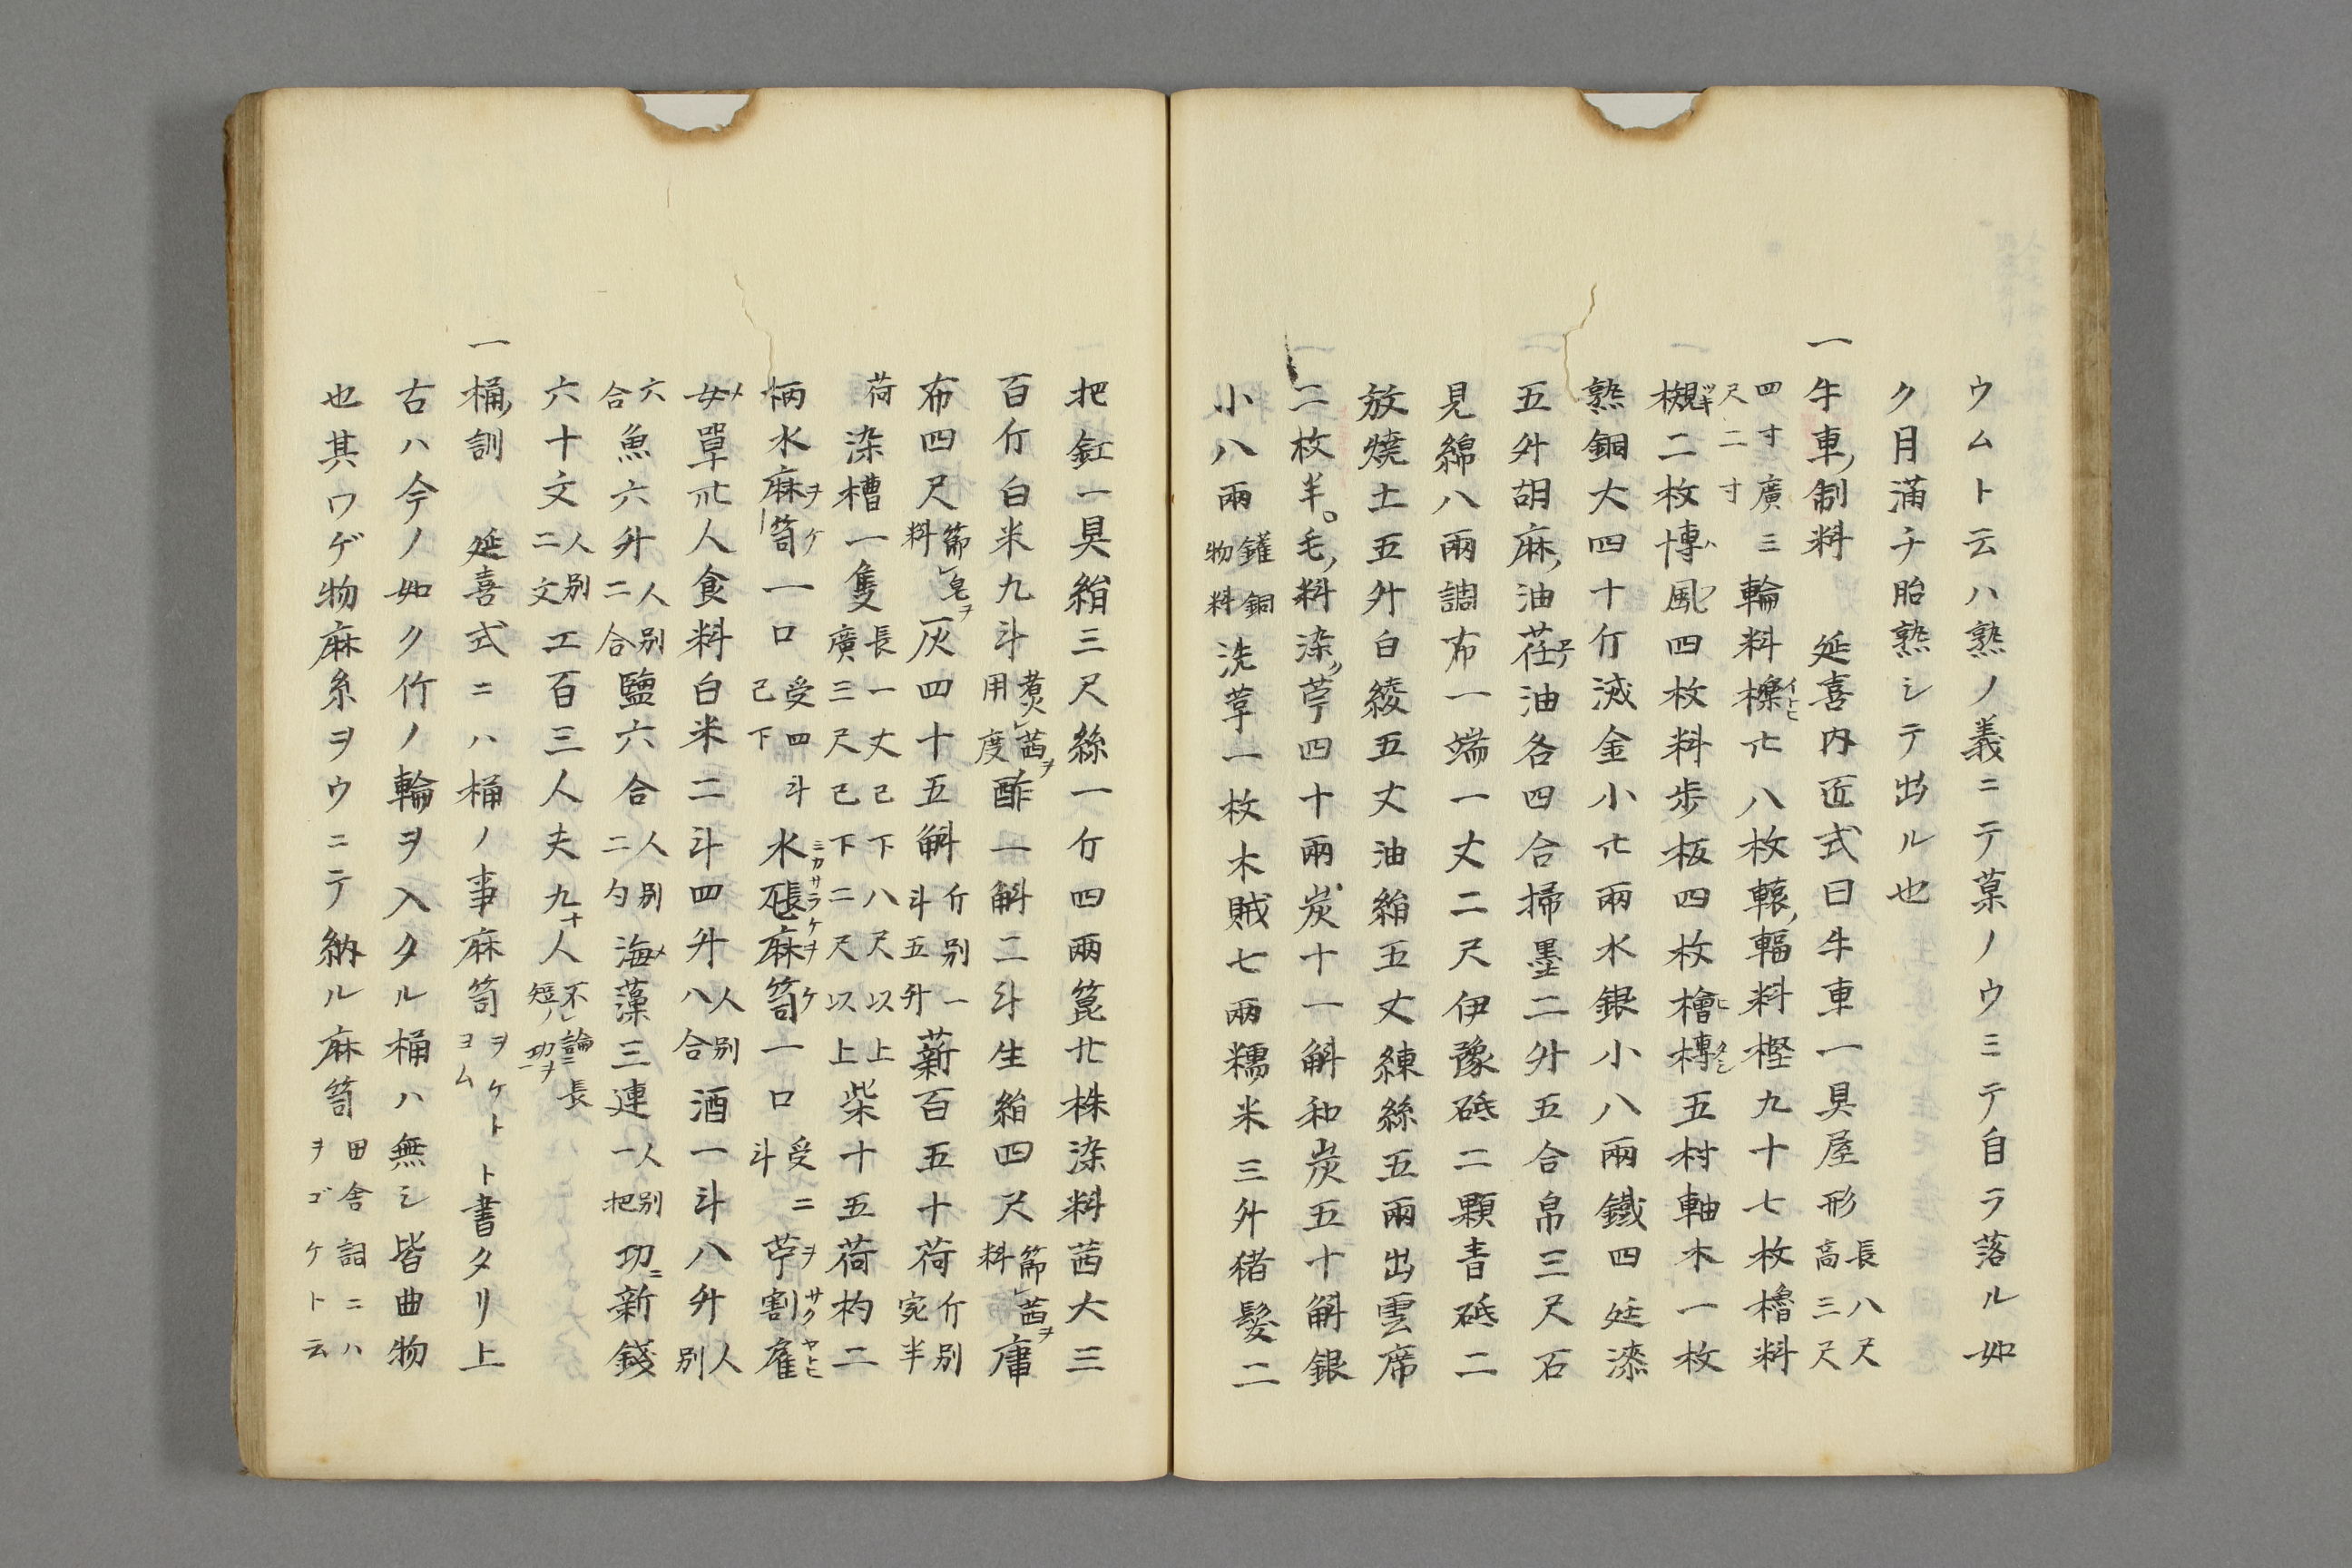 ウムト云ハ熟ノ義ニテ菓ノウミテ自ラ落ル如
ク月滿チ胎熟シテ出ル也
一牛車ノ制料 延喜内匠式曰牛車一具屋形長八尺高三尺
四寸廣三尺二寸輪料櫲卄八枚轅ノ輻料樫九十七枚櫓料
櫬二枚博風四枚料歩板四枚檜榑五村軸木一枚
熟銅大四十斤滅金小卄兩水銀小八兩鐵四廷漆
五升胡麻ノ油荏油各四合掃墨二升五合帛三尺石
見綿八兩調布一端一丈二尺伊豫砥二顆青砥二
放燒土五升白綾五丈油絁五丈練絲五兩出雲席
二枚半。毛ノ料染苧四十兩炭十一斛和炭五十斛銀
小八兩鑵銅物料洗革一枚木賊七兩糯米三升猪髮二
把釭一具絹三尺絲一斤四兩篦廿株染料茜大三
百斤白米九斗煑茜ヲ用度酢一斛二斗生絁四尺篩茜ヲ料庸
布四尺篩皂ヲ料灰四十五斛斤別一斗五升薪百五十荷斤別宛半
荷染槽一隻長一丈已下八尺以上廣三尺已下二尺以上柴十五荷杓二
柄水麻笥一口受四斗已下水𤭖麻笥一口受二斗苧割雇
女單卄人食料白米二斗四升人別八合酒一斗八升人別
六合魚六升人別二合鹽六合人別二勺海藻三連人別一把功新錢
六十文人別二文工百三人夫九十人不論長短ノ功ヲ
一桶ノ訓 延喜式ニハ桶ノ事麻笥ヲケトヨムト書タリ上
古ハ今ノ如ク竹ノ輪ヲ入タル桶ハ無シ皆曲物
也其ワゲ物麻糸ヲウニテ納ル麻笥田舎詞ニハヲゴケト云